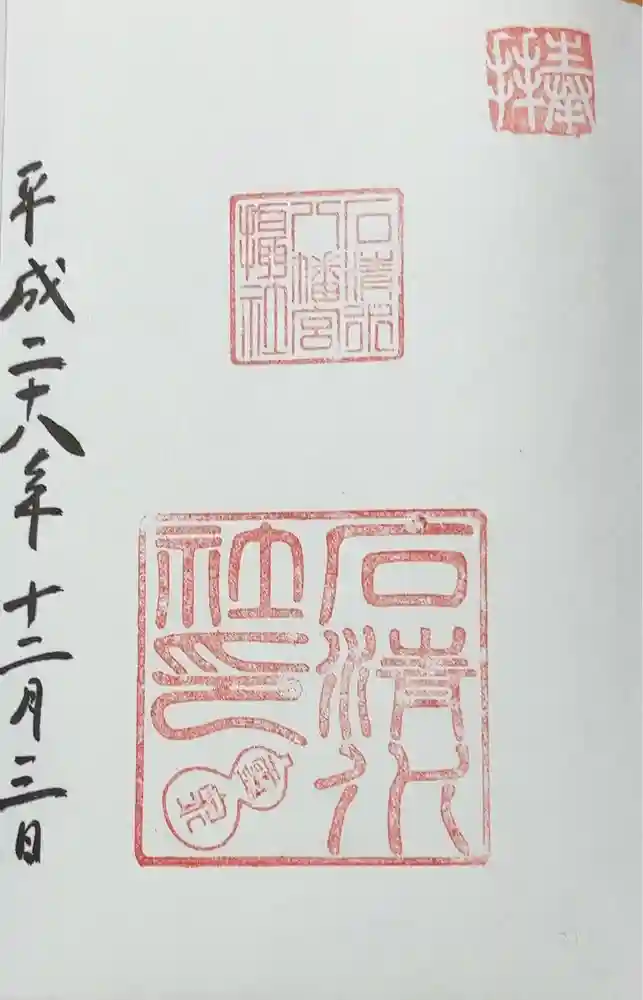 奉拝
石清水
八幡宮
摂社
石清水
社印
平成二十八年十二月三日